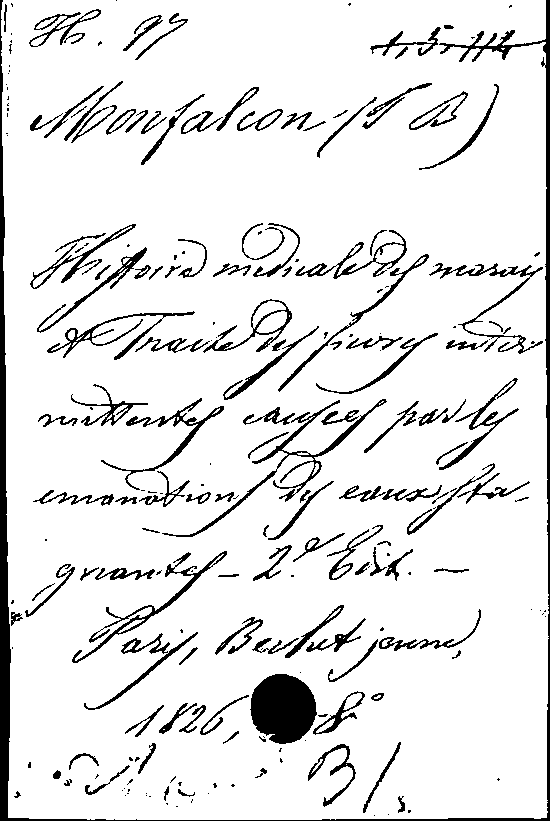 H. 97
1,5,112
Monfalcon (J B)
Histoire medicale des marais
et Traité des fievres inter
mittentes causées par les
emanations des eaux sta-
gnantes - 2e Edit. -
Paris, Bechet jeune,
1826, 8°
B/s.